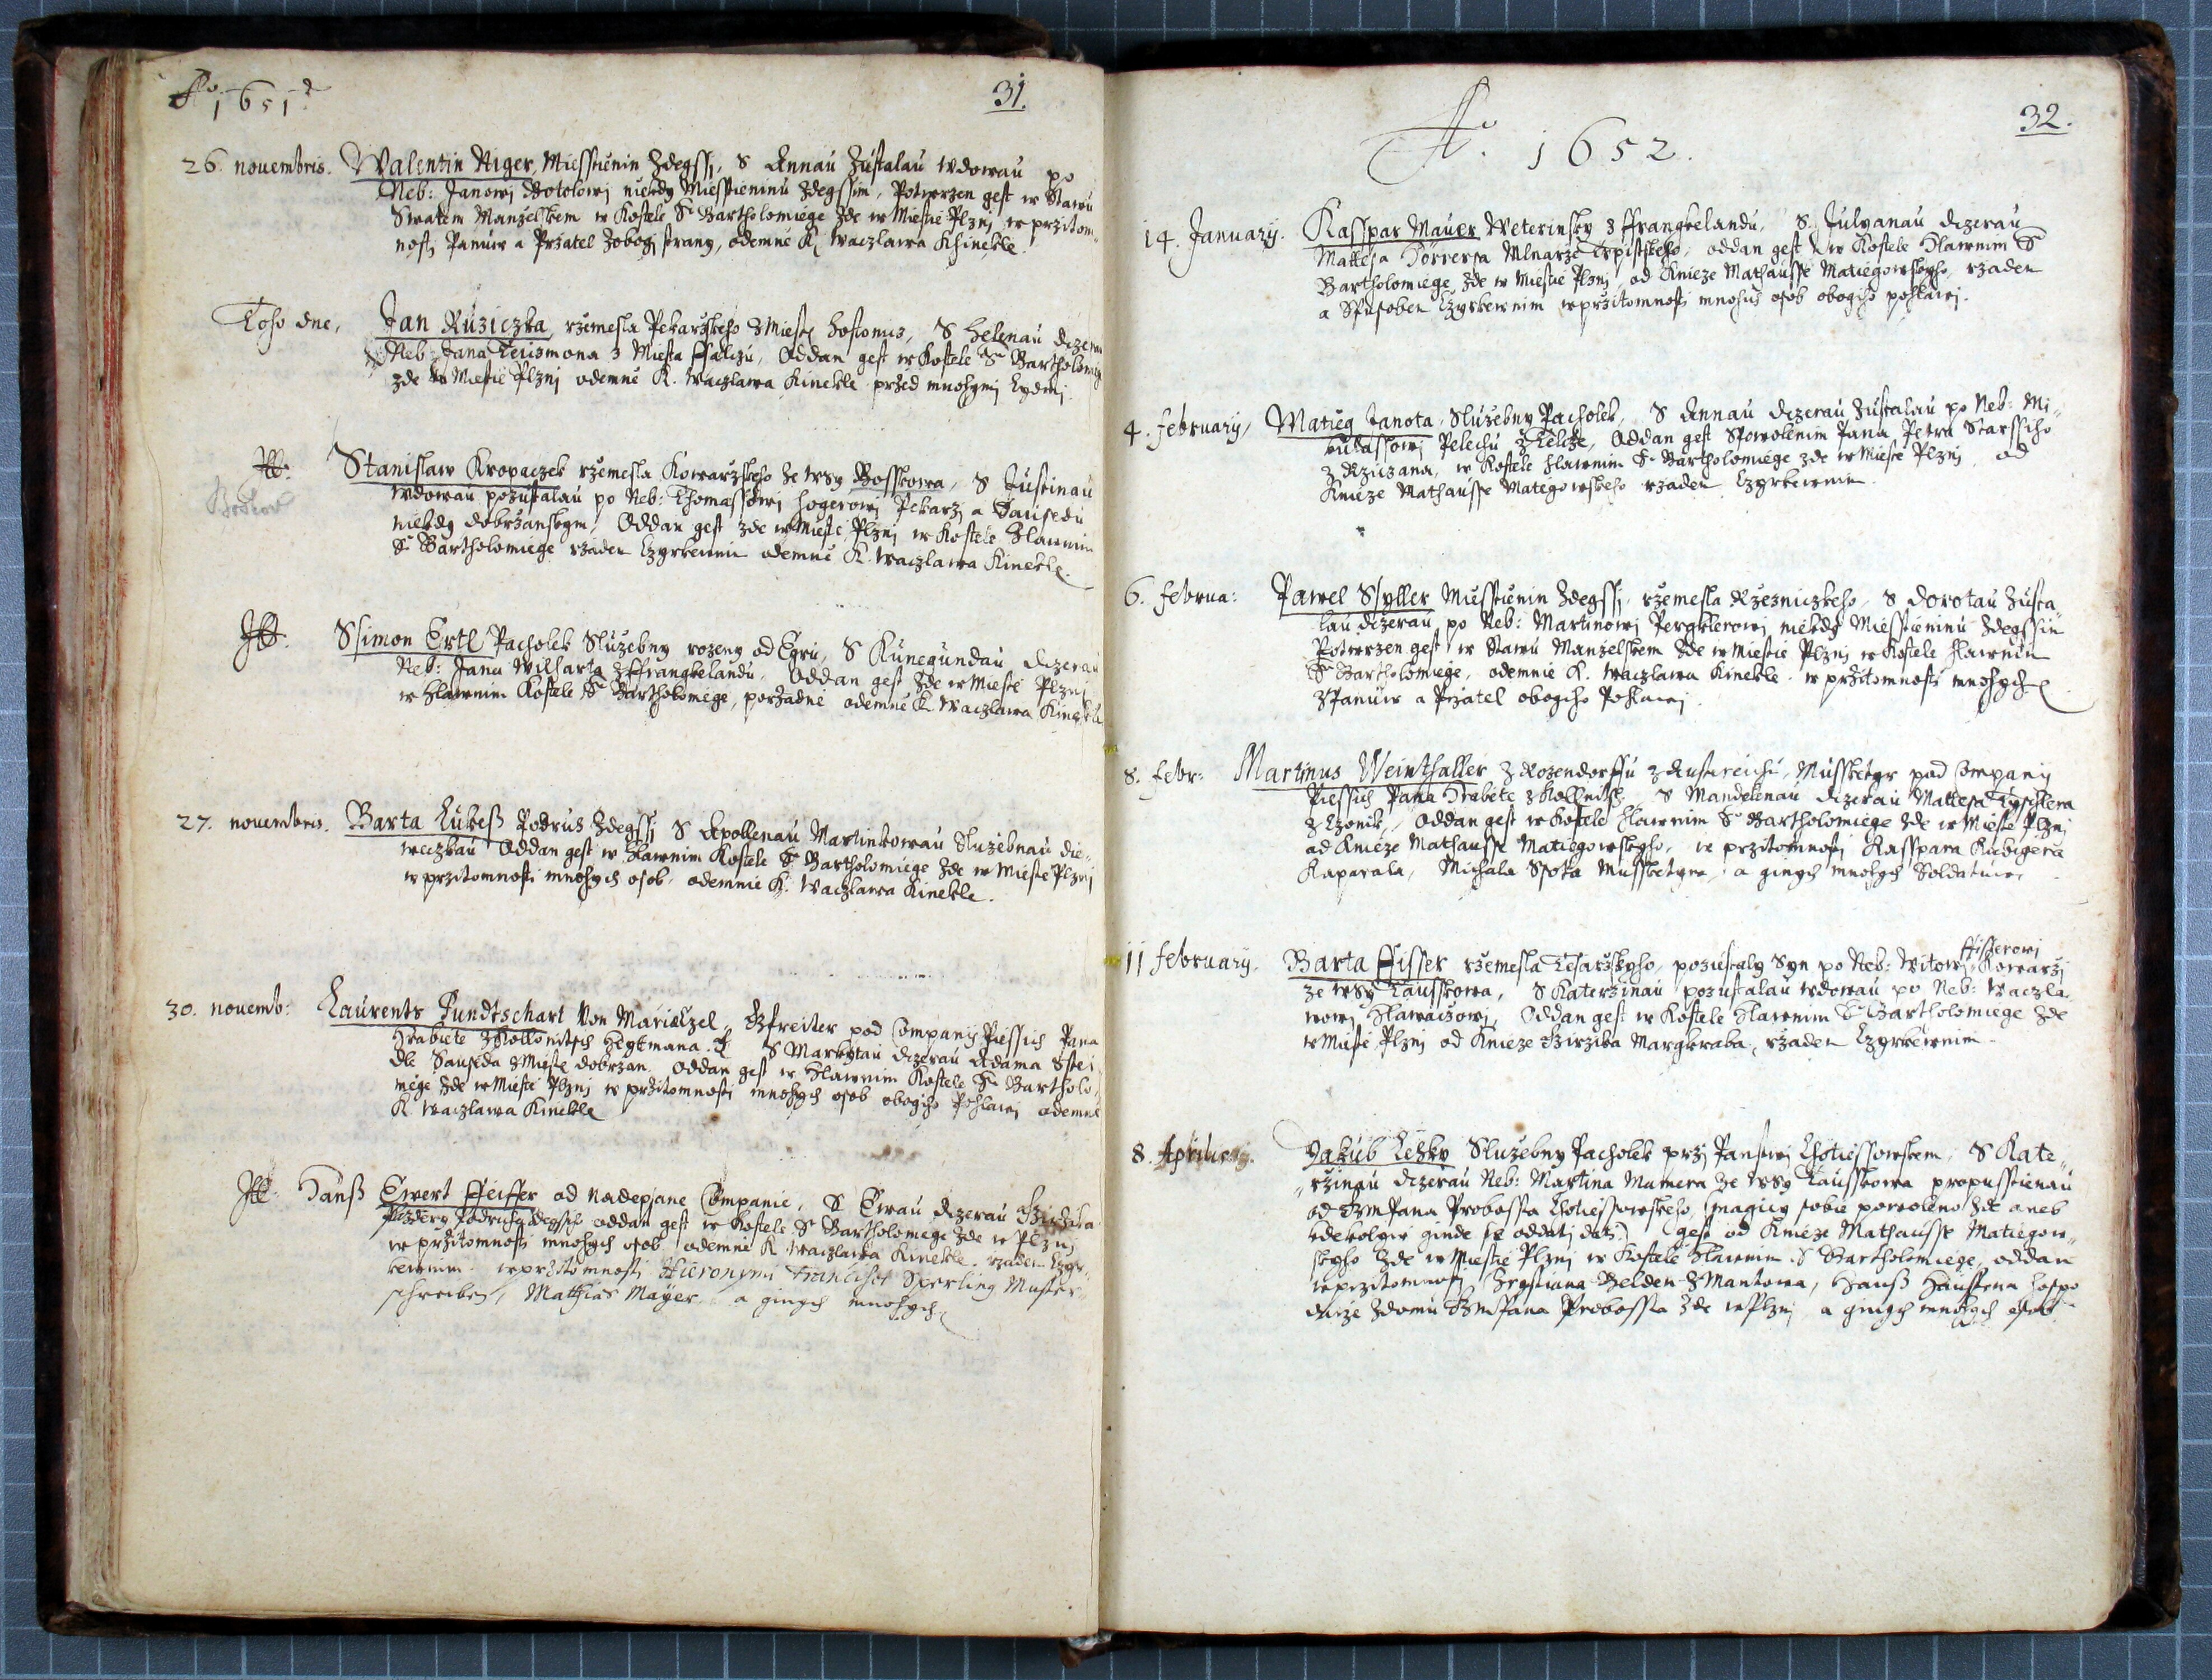 Ao. 1651.
31.
26. nouembris. Walentin Niger, Miesstienin Zdegssj, S Annau Zustalau Wdowau po
Neb: Janowj Botolowj niekdy Miesstieninu Zdegssim, Potwrzen gest w Stawu
Swatem Manzelskem w Kostele S. Bartholomiege Zde w Miestie Plznj, w przitom-
nosti Panuw a Przatel Zobogj strany, odemne K. Waczlawa Khinekle.
Toho dne, Jan Ruziczka rzemesla Pekarzskeho Z Miesta Hostomic, S Helenau dczerau
Neb: Jana z Miesta, Oddan gest w Kostele S. Bartholomiege
zde w Miestie Plznj odemne K. Waczlawa Kinekle przed mnohymj Lydmj.
Itt. Stanislaw Kropaczek rzemesla Kowarzskeho Ze Wsy Bosskowa, S Justinau
Wdowau pozustalau po Neb: Thomassowj Hogerowj Pekarzj a Sausedu
niekdy dobrzanskym, Oddan gest zde w Miestie Plznj w Kostele Hlawnim
S. Bartholomiege rzadem Czyrkewnim odemne K. Waczlawa Kinekle.
Itt. Ssimon Ertl Pacholek Sluzebny rozeny od Egru, S Kunegundau dczerau
Neb: Jana Wilharta Z Ffrangkelandu, Oddan gest Zde w Miestie Plznj
w Hlawnim Kostele S. Bartholomege, porzadnie odemne K. Waczlawa Kinekle
27. nouembris. Barta Lukess Podruh Zdegssj S Apollenau Martinkowau Sluzebnau die-
weczkau Oddan gest w Hlawnim Kostele S. Bartholomiege Zde w Miestie Plznj
w przitomnosti mnohych osob, odemnie K. Waczlawa Kinekle.
30. nouemb: Laurents Pundtschart Von Mariaezel, Gfreiter pod Companij Piessich Pana
Hrabiete Z Kollonitsch Hegtmana S Markytau dczerau Adama
dle Sauseda Z Miesta dobrzan. Oddan gest w Hlawnim Kostele S. Bartholo-
mege Zde w Miestie Plznj w przitomnosti mnohych osob obogiho Pohlawj odemne
K. Waczlawa Kinekle
Itt. Hanss Ewert Pfeiffer od nadepsane Companie, S Ewau dczerau
Podruha Zdegssiho oddan gest w Kostele S. Bartholomiege Zde w Plznj
w przitomnosti mnohych osob odemne K. Waczlawa Kinekle, rzadem Czyr-
kewnim. w przitomnosti Hieronymi Francisci Sperling Muster-
schreiber, Mathias Mayer a ginych mnohych
32.
Ao. 1652.
14. Januarij. Kasspar Mauer Weterinsky z Ffrangkelandu, S. Julyanau dczerau
Mattesa Dörrera Mlnarze, oddan gest w Kostele Hlawnim S
Bartholomiege, Zde w Miestie Plznj, od Knieze Mathausse Matiegowskyho, rzadem
a Spusobem Czyrkewnim w przitomnosti mnohych osob obogiho pohlawj.
4. february, Matieg Janota, Sluzebny Pacholek, S Annau dczerau Zustalau po Neb: Mi-
kulassowj Pelechu, Oddan gest S Powolenim Pana Petra Starssiho
Z Rziczana, w Kostele Hlawnim S. Bartholomiege zde w Miestie Plznj, od
Knieze Mathausse Matiegowskeho rzadem Czyrkewnim.
6. februa: Pawel Ssyller Miesstienin Zdegssj, rzemesla Rzeznickeho, S dorotau Zusta-
lau dczerau po Neb: Martinowj Pergklerowj niekdy Miesstieninu Zdegssim
Potwrzen gest w Stawu Manzelskem Zde w Miestie Plznj w Kostele Hlawnim
S. Bartholomiege, odemne K. Waczlawa Kinekle w przitomnosti mnohych
Z Panuw a Przatel obogiho Pohlawj.
8. febr: Martinus Weinthaller Z Rozendorffu z Austreichu, Mussketyr pod Companij
Piessich Pana Hrabete z Kollnitsch. S Mandelenau dczerau Mattesa Tysslera
, Oddan gest w Kostele Hlawnim S. Bartholomiege Zde w Miestie Plznj
od Knieze Mathausse Matiegowskyho, w przitomnosti Kasspara Kubigera
Kaparala, Michala Spoka Mussketyra, a ginych mnohych Soldatuw.
Ffisserowj
11 february. Barta Ffisser rzemesla Tesarzskyho, pozustaly Syn po Neb: Witowj Kowarzj
ze Wsy Lausskowa, S Katerzinau pozustalau wdowau po Neb: Waczla-
wowj Hlawaczowj, Oddan gest w Kostele Hlawnim S Bartholomiege Zde
w Miestie Plznj od Knieze Girzika Margkraba, rzadem Czyrkewnim.
8. Aprilis. Jakub Lehky Sluzebny Pacholek przj Panstwj Chotiessowskem, S Kate-
rzinau dczerau Neb: Martina Mamera Ze Wsy Lausskowa propusstienau
od Pana Probossta Chotiessowskeho, (magicy sobie powoleno Zde aneb
kdekolgiw ginde se oddati dati) gest od Knieze Mathausse Matiegow-
skyho Zde w Miestie Plznj w Kostele Hlawnim S. Bartholomiege, oddan
w przitomnosti Krystiana Belden Z Mantowa, Hanss Haustena Hospo-
darze Zdomu Pana Probossta Zde w Plznj a ginych mnohych osob.